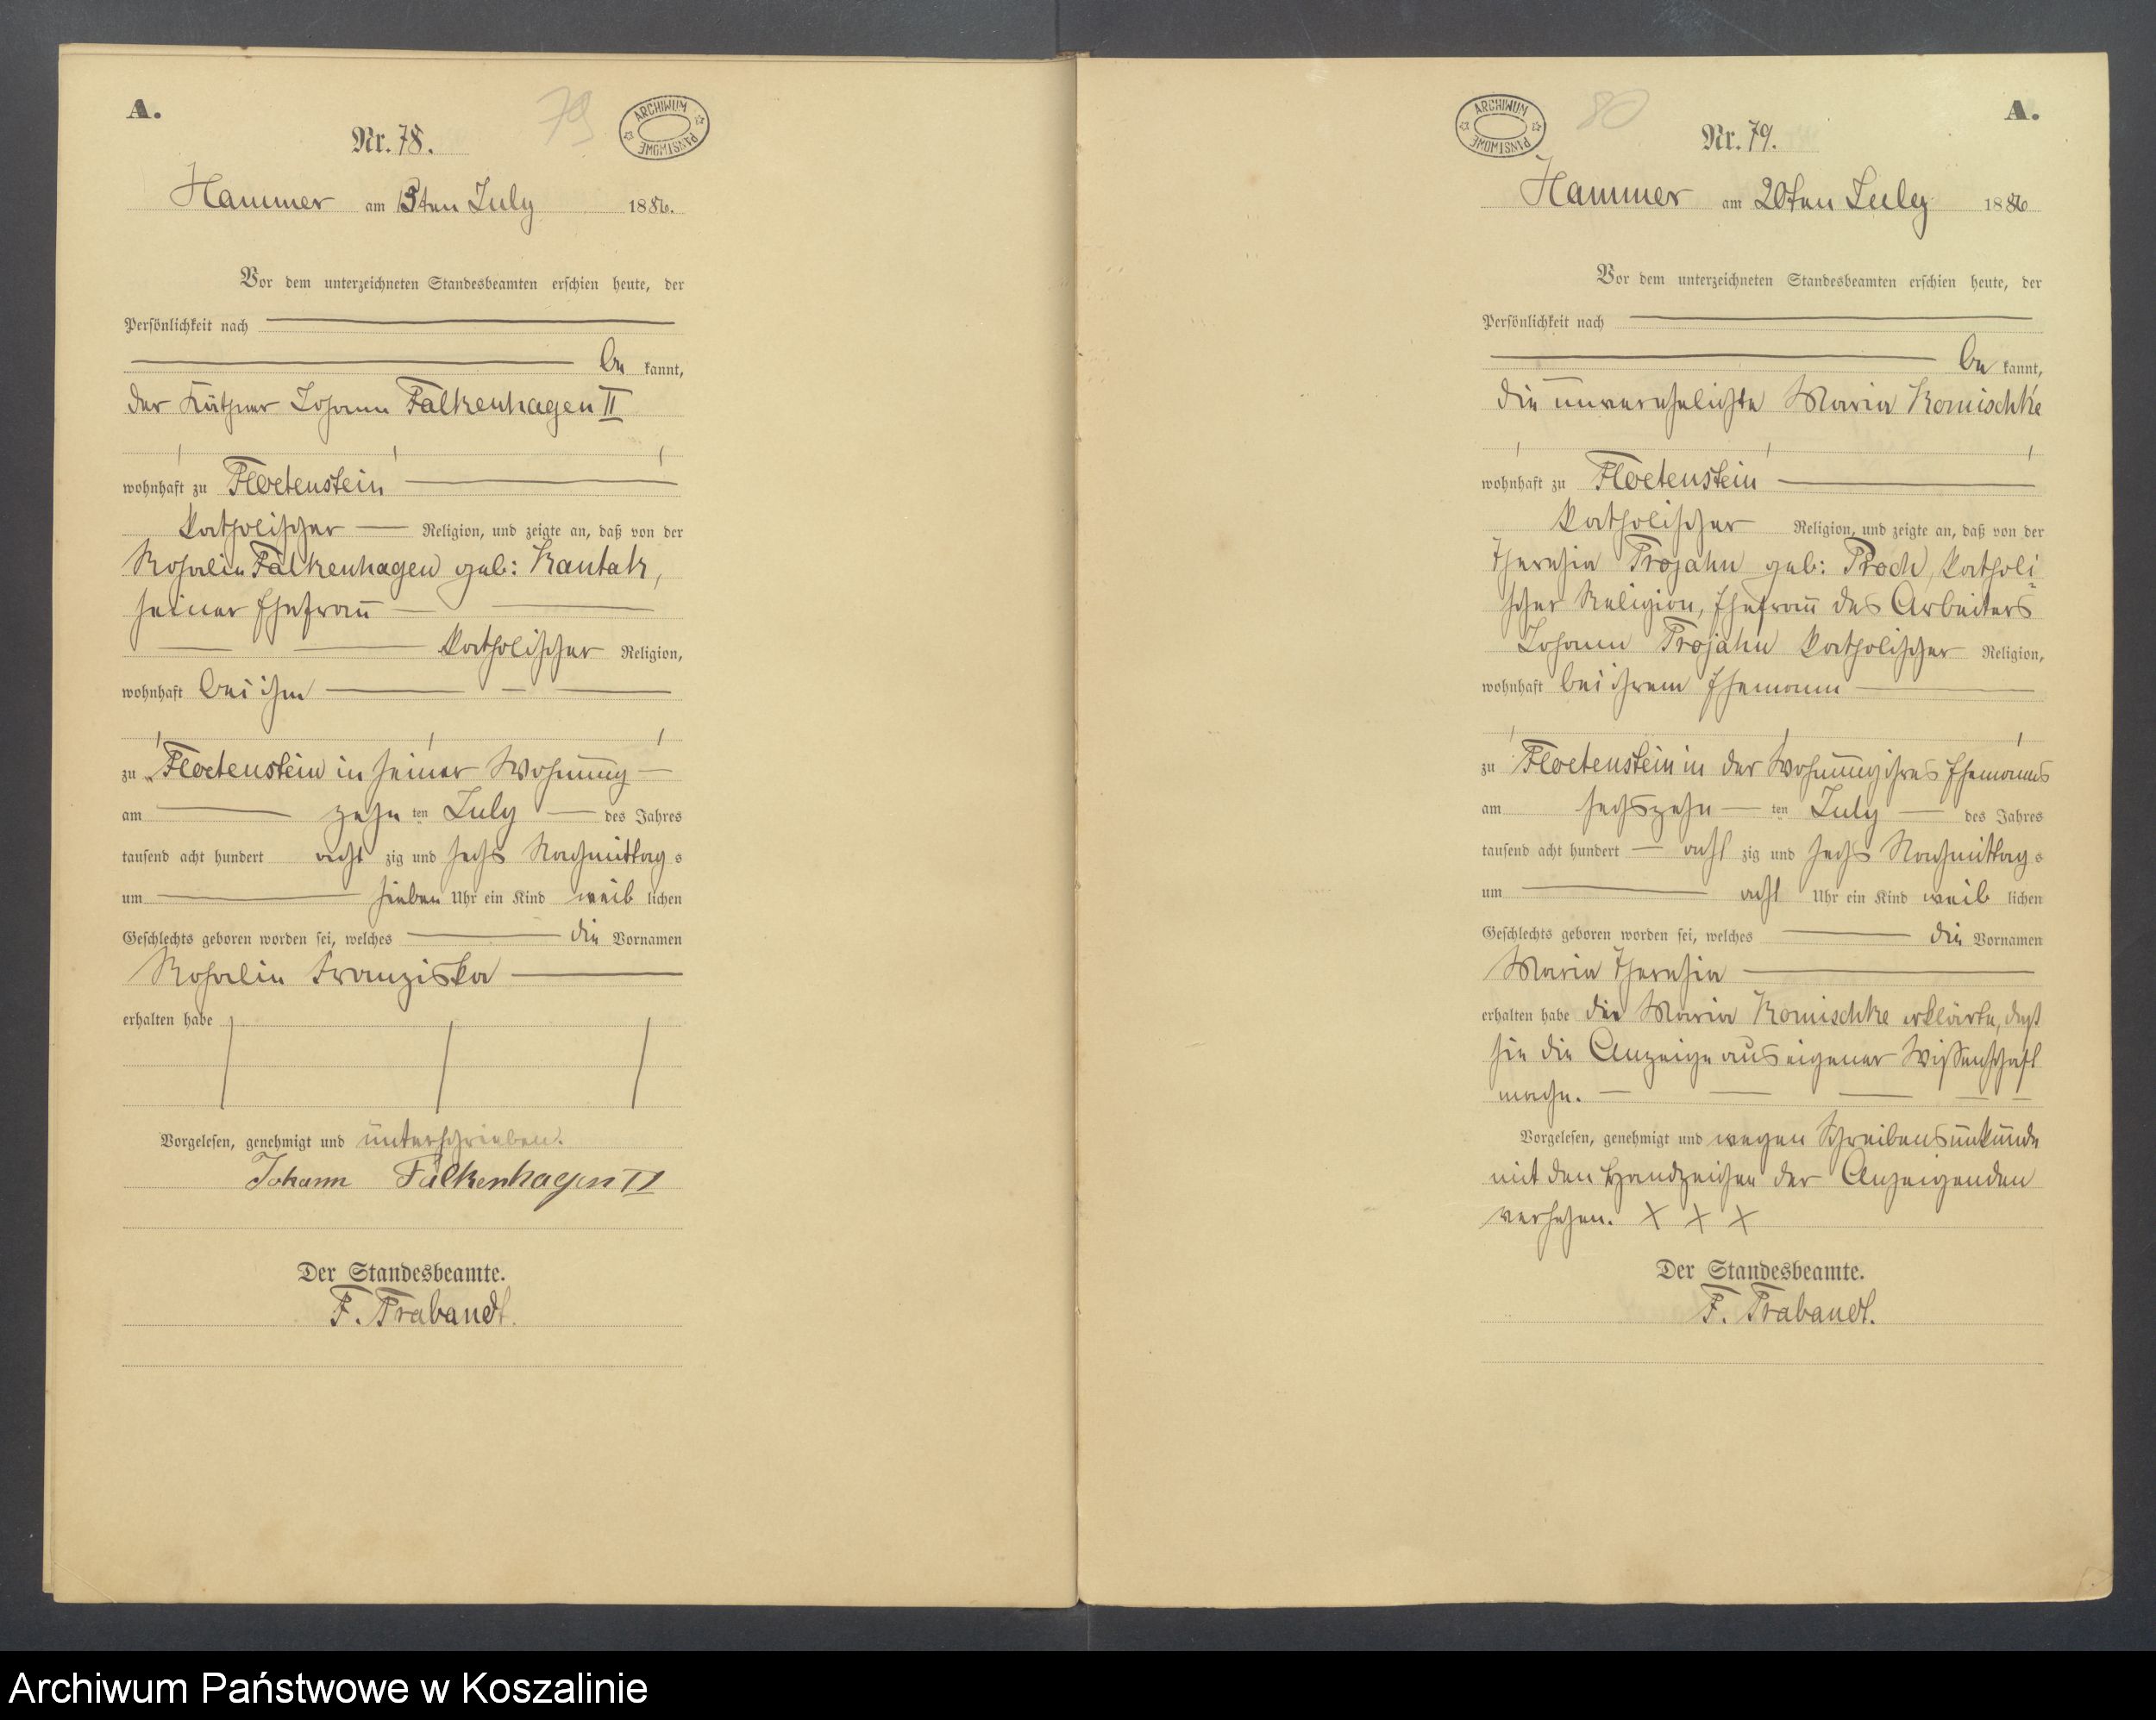 A.
79
ARCHIWUM PAŃSTWOWE
Nr. 78.
Hammer am 13ten July 1886.
Vor dem unterzeichneten Standesbeamten erschien heute, der
Persönlichkeit nach
be kannt,
der Käthner Johann Falkenhagen II
wohnhaft zu Floetenstein
katholischer Religion, und zeigte an, daß von der
Rosalie Falkenhagen geb: Kantak,
seiner Ehefrau
katholischer Religion,
wohnhaft bei ihm
zu Floetenstein in seiner Wohnung
am zehn ten July des Jahres
tausend acht hundert acht zig und sechs Nachmittag s
um sieben Uhr ein Kind weib lichen
Geschlechts geboren worden sei, welches die Vornamen
Rosalie Franziska
erhalten habe
Vorgelesen, genehmigt und unterschrieben.
Johann Falkenhagen II
Der Standesbeamte.
F. Trabandt.
ARCHIWUM PAŃSTWOWE
80
A.
Nr. 79.
Hammer am 20ten July 1886
Vor dem unterzeichneten Standesbeamten erschien heute, der
Persönlichkeit nach
be kannt,
die unverehelichte Maria Komischke
wohnhaft zu Floetenstein
katholischer Religion, und zeigte an, daß von der
Theresia Trojahn geb: Proch, katholi-
scher Religion, Ehefrau des Arbeiters
Johann Trojahn katholischer Religion,
wohnhaft bei ihrem Ehemann
zu Floetenstein in der Wohnung ihres Ehemanns
am sechszehn ten July des Jahres
tausend acht hundert acht zig und sechs Nachmittag s
um acht Uhr ein Kind weib lichen
Geschlechts geboren worden sei, welches die Vornamen
Maria Theresia
erhalten habe die Maria Komischke erklärte, daß
sie die Anzeige aus eigener Wissenschaft
mache.
Vorgelesen, genehmigt und wegen Schreibensunkunde
mit den Handzeichen der Anzeigenden
versehen. X X X
Der Standesbeamte.
F. Trabandt.
Archiwum Państwowe w Koszalinie